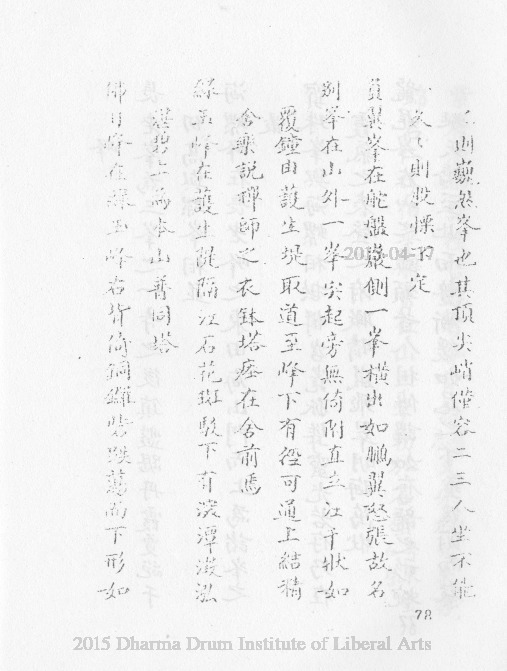 則巍然峯也其頂尖峭僅容二三人坐不能
久久則股慄不定
員翼峯在舵盤巖側一峯橫出如鵬翼怒張故名
別峯在山外一峯突起旁無倚附直立江干狀如
覆鐘由護生堤取道至峰下有徑可通上結精
舍樂說禪師之衣鉢塔在舍前焉
綠玉峰在護生隄隔江石花斑駁下有淺潭澂泓
湛碧上為本山普同塔
佛日峰在綠玉峰右背倚銅鑼蕩而下形如
78
2015 Dharma Drum Institute of Liberal Arts